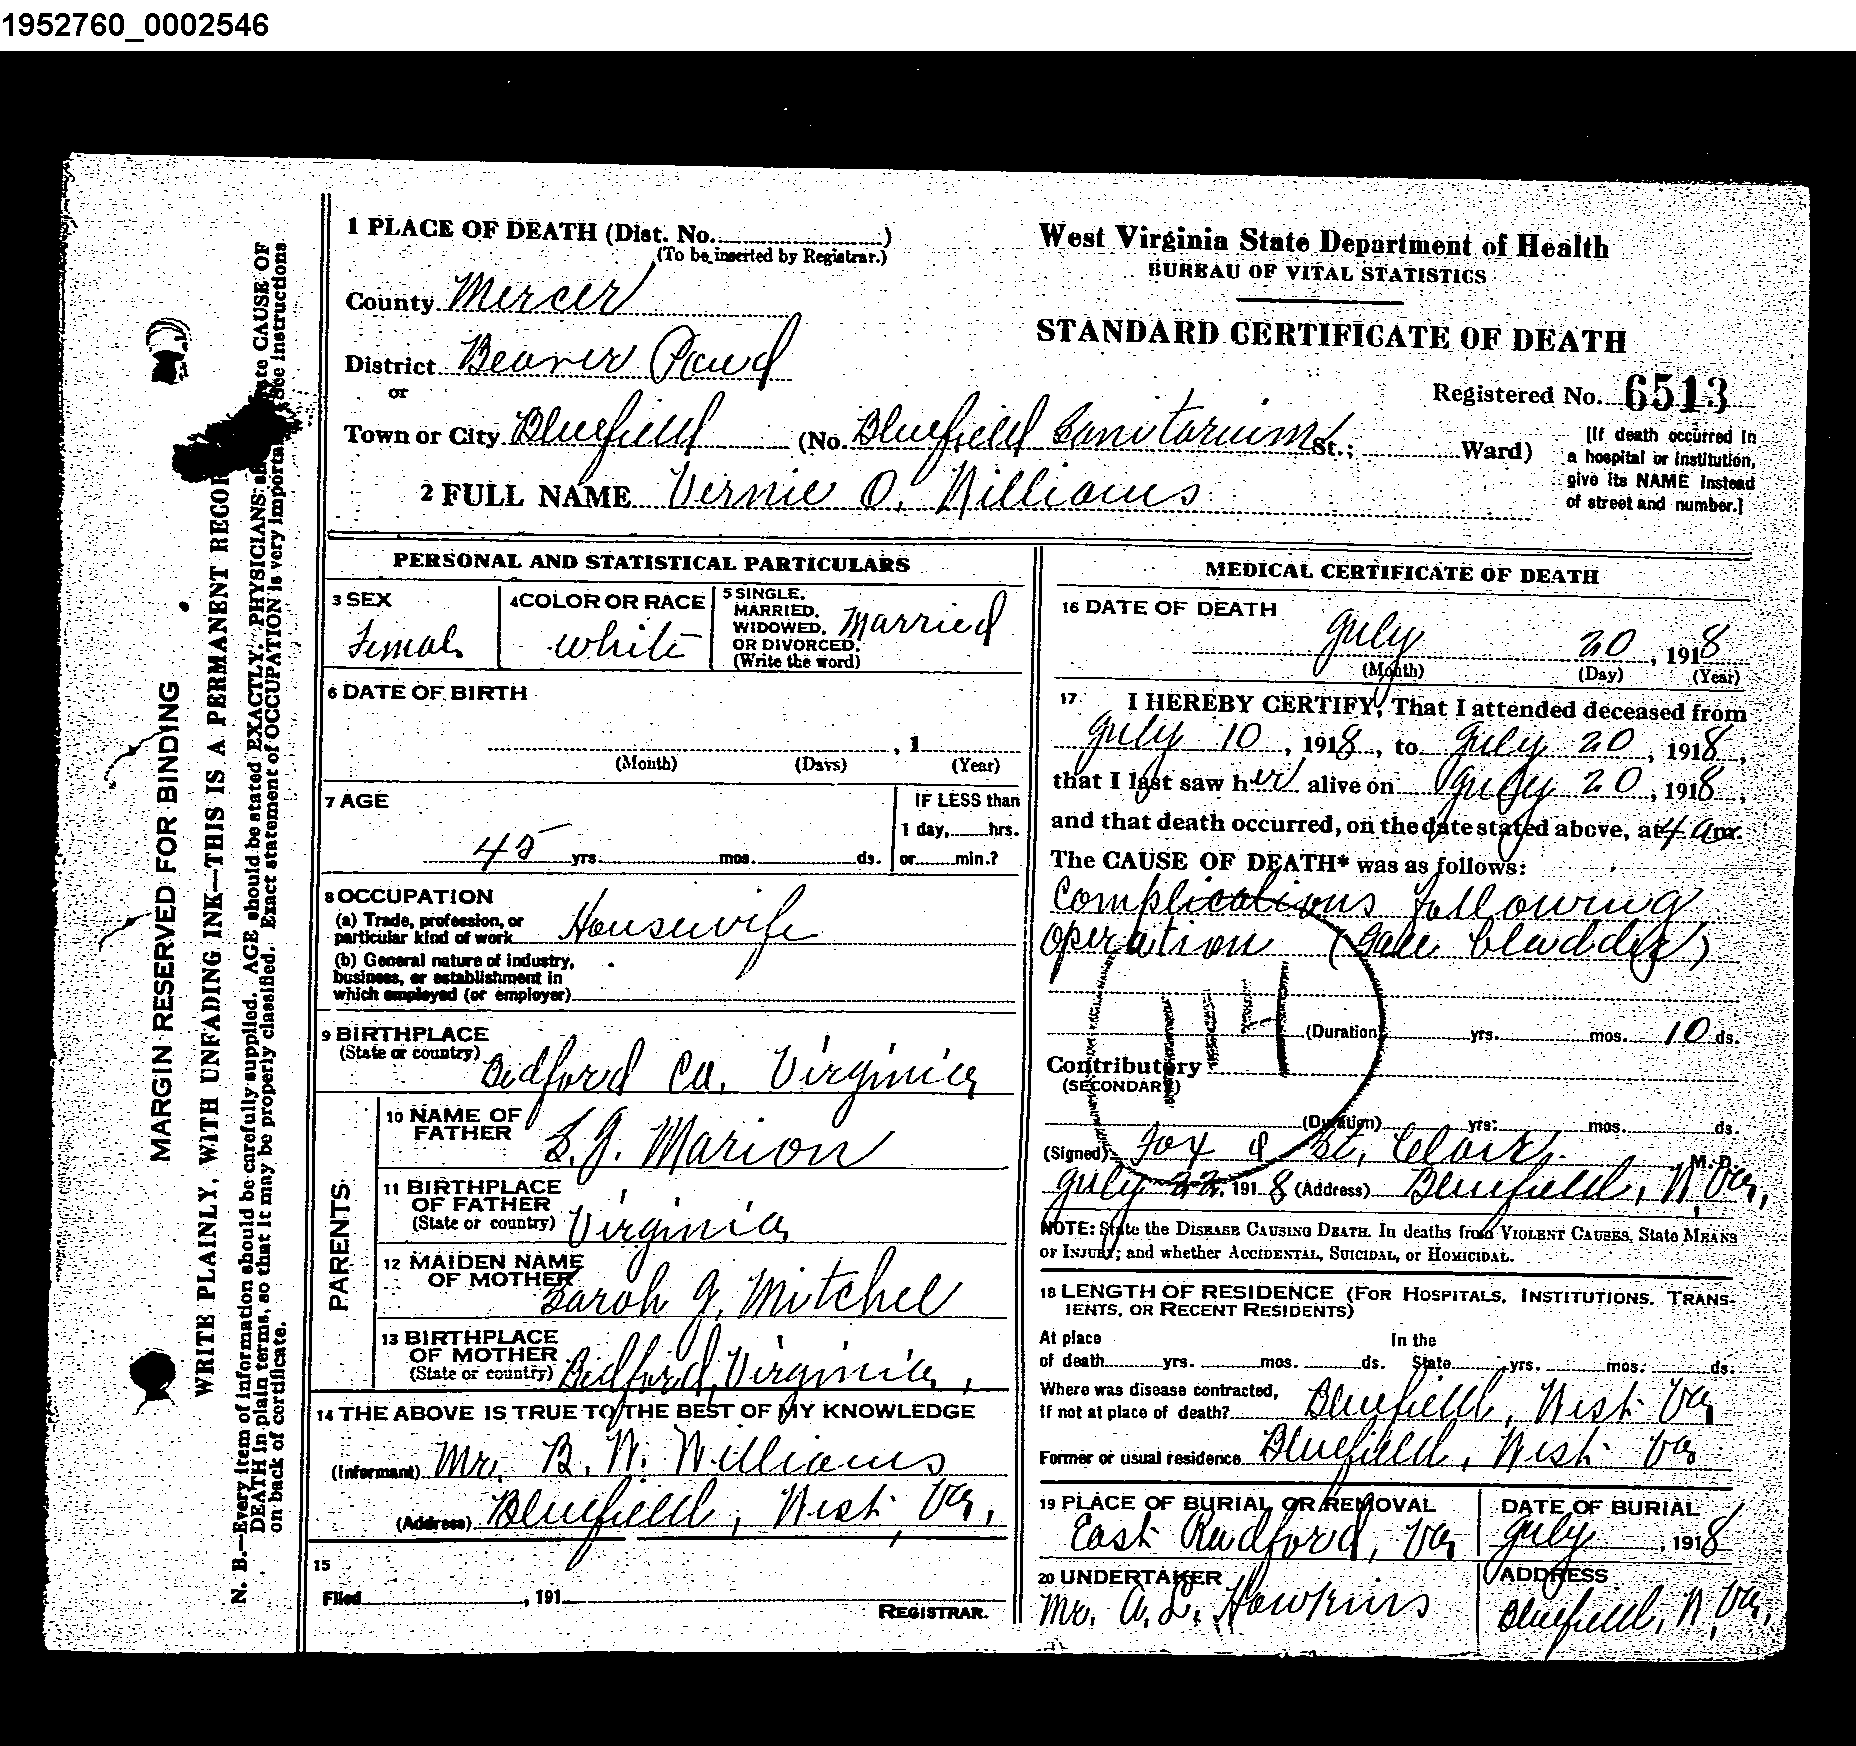 1952760_0002546
1 PLACE OF DEATH (Dist. No. )
(To be inserted by Registrar.)
County Mercer
District Beaver Pond
or
Town or City Bluefield (No. Bluefield Sanitarium St.; Ward)
2 FULL NAME Vernie O. Williams
West Virginia State Department of Health
BUREAU OF VITAL STATISTICS
STANDARD CERTIFICATE OF DEATH
Registered No. 6513
[If death occurred in
a hospital or institution,
give its NAME instead
of street and number.]
MARGIN RESERVED FOR BINDING
WRITE PLAINLY, WITH UNFADING INK—THIS IS A PERMANENT RECOR
N. B.—Every item of information should be carefully supplied. AGE should be stated EXACTLY. PHYSICIANS ate CAUSE OF
DEATH in plain terms, so that it may be properly classified. Exact statement of OCCUPATION is very importa See instructions
on back of certificate.
PERSONAL AND STATISTICAL PARTICULARS
3 SEX
Female
4 COLOR OR RACE
White
5 SINGLE,
MARRIED,
WIDOWED,
OR DIVORCED.
(Write the word)
Married
6 DATE OF BIRTH
, 1
(Month) (Days) (Year)
7 AGE
45 yrs. mos. ds.
IF LESS than
1 day, hrs.
or min.?
8 OCCUPATION
(a) Trade, profession, or
particular kind of work Housewife
(b) General nature of industry,
business, or establishment in
which employed (or employer)
9 BIRTHPLACE
(State or country) Bedford Co. Virginia
PARENTS
10 NAME OF
FATHER S. J. Marion
11 BIRTHPLACE
OF FATHER
(State or country) Virginia
12 MAIDEN NAME
OF MOTHER Sarah J. Mitchel
13 BIRTHPLACE
OF MOTHER
(State or country) Bedford, Virginia,
14 THE ABOVE IS TRUE TO THE BEST OF MY KNOWLEDGE
(Informant) Mr. B. W. Williams
(Address) Bluefield, West Va,
15
Filed , 191
REGISTRAR.
MEDICAL CERTIFICATE OF DEATH
16 DATE OF DEATH
July 20, 1918
(Month) (Day) (Year)
17 I HEREBY CERTIFY, That I attended deceased from
July 10, 1918, to July 20, 1918,
that I last saw her alive on July 20, 1918,
and that death occurred, on the date stated above, at 4 am.
The CAUSE OF DEATH* was as follows:
Complications following
operation (Gall bladder)
114
(Duration) yrs. mos. 10 ds.
Contributory
(SECONDARY)
(Duration) yrs. mos. ds.
(Signed) Fox & St. Clair M. D.
July 22, 1918 (Address) Bluefield, W. Va,
NOTE: State the DISEASE CAUSING DEATH. In deaths from VIOLENT CAUSES, State MEANS
OF INJURY; and whether ACCIDENTAL, SUICIDAL, or HOMICIDAL.
18 LENGTH OF RESIDENCE (FOR HOSPITALS, INSTITUTIONS, TRANS-
IENTS, OR RECENT RESIDENTS)
At place In the
of death yrs. mos. ds. State yrs. mos. ds.
Where was disease contracted,
If not at place of death? Bluefield, West Va
Former or usual residence Bluefield, West Va
19 PLACE OF BURIAL OR REMOVAL
East Radford, Va
DATE OF BURIAL
July , 1918
20 UNDERTAKER
Mr. A. L. Hawkins
ADDRESS
Bluefield, W. Va,